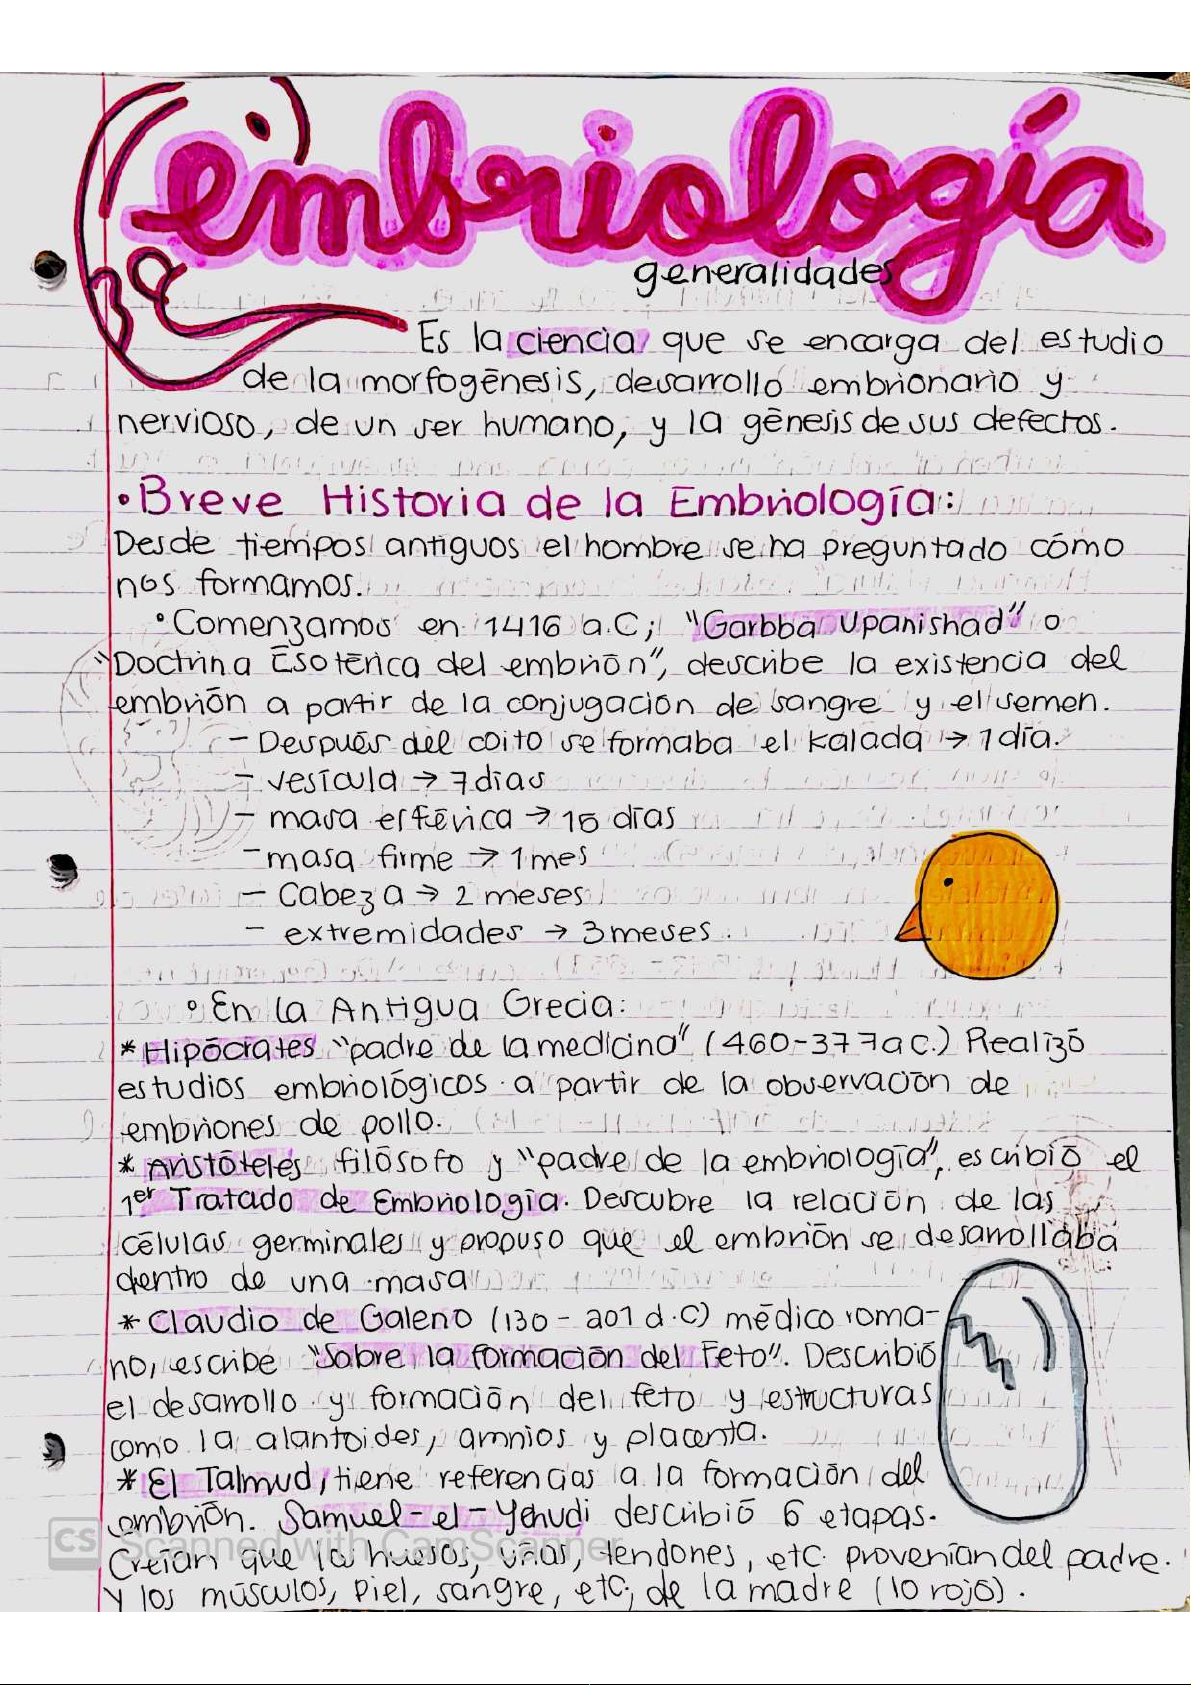 embriología
generalidades
Es la ciencia que se encarga del estudio
de la morfogénesis, desarrollo embrionario y
nervioso, de un ser humano, y la génesis de sus defectos.
• Breve Historia de la Embriología:
Desde tiempos antiguos el hombre se ha preguntado cómo
nos formamos.
° Comenzamos en 1416 a.C; "Garbba Upanishad" o
"Doctrina Esotérica del embrión", describe la existencia del
embrión a partir de la conjugación de sangre y el semen.
- Después del coito se formaba el Kalada → 1 día.
- vesícula → 7 días
- masa esférica → 15 días
- masa firme → 1 mes
- Cabeza → 2 meses
- extremidades → 3 meses.
° En la Antigua Grecia:
* Hipócrates "padre de la medicina" (460-377 a C.) Realizó
estudios embriológicos a partir de la observación de
embriones de pollo.
* Aristóteles filósofo y "padre de la embriología", escribió el
1er Tratado de Embriología. Descubre la relación de las
células germinales y propuso que el embrión se desarrollaba
dentro de una masa
* Claudio de Galeno (130 - 201 d.C) médico roma-
no, escribe "Sobre la formación del Feto". Describió
el desarrollo y formación del feto y estructuras
como la alantoides, amnios y placenta.
* El Talmud, tiene referencias a la formación del
embrión. Samuel-el-Yehudi describió 6 etapas.
Creían que los huesos, uñas, tendones, etc. provenían del padre.
Y los músculos, piel, sangre, etc, de la madre (lo rojo).
CS Scanned with CamScanner